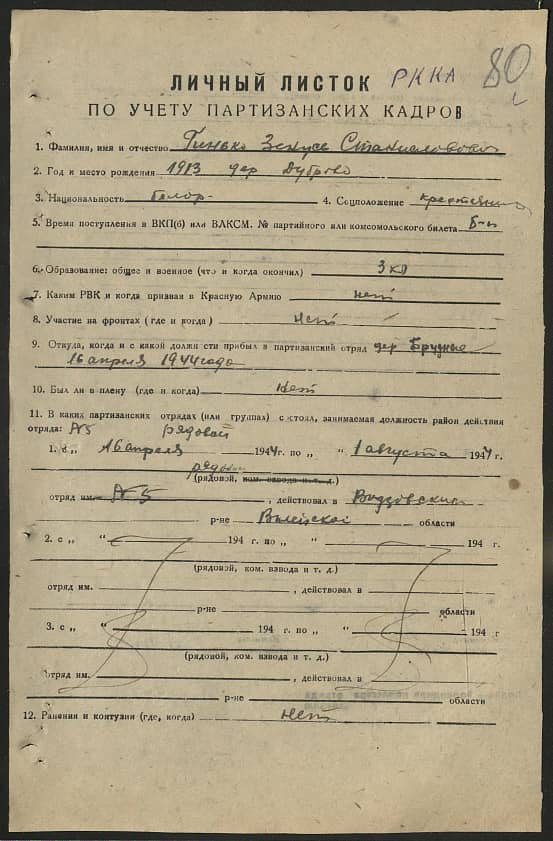 РККА 80
ЛИЧНЫЙ ЛИСТОК
ПО УЧЕТУ ПАРТИЗАНСКИХ КАДРОВ
1. Фамилия, имя и отчество Станиславович
2. Год и место рождения 1913 дер Дуброво
3. Национальность белор- 4. Соцположение крестьянин
5. Время поступления в ВКП(б) или ВЛКСМ. № партийного или комсомольского билета б-п
6. Образование: общее и военное (что и когда окончил) 3 кл
7. Каким РВК и когда призван в Красную Армию нет
8. Участие на фронтах (где и когда) нет
9. Откуда, когда и с какой должности прибыл в партизанский отряд дер
16 апреля 1944 года
10. Был ли в плену (где и когда) нет
11. В каких партизанских отрядах (или группах) состоял, занимаемая должность район действия
отряда: №5 рядовой
1. с „ 16 апреля 1944 г. по „ “ 1 августа 1944 г.
рядовой
(рядовой, ком. взвода и т. д.)
отряд им. №5, действовал в Видзовский
р-не Вилейской области
2. с „ “ 194 г. по „ “ 194 г.
(рядовой, ком. взвода и т. д.)
отряд им. , действовал в
р-не области
3. с „ “ 194 г. по „ “ 194 г
(рядовой, ком. взвода и т. д.)
отряд им. , действовал в
р-не области
12. Ранения и контузии (где, когда) нет